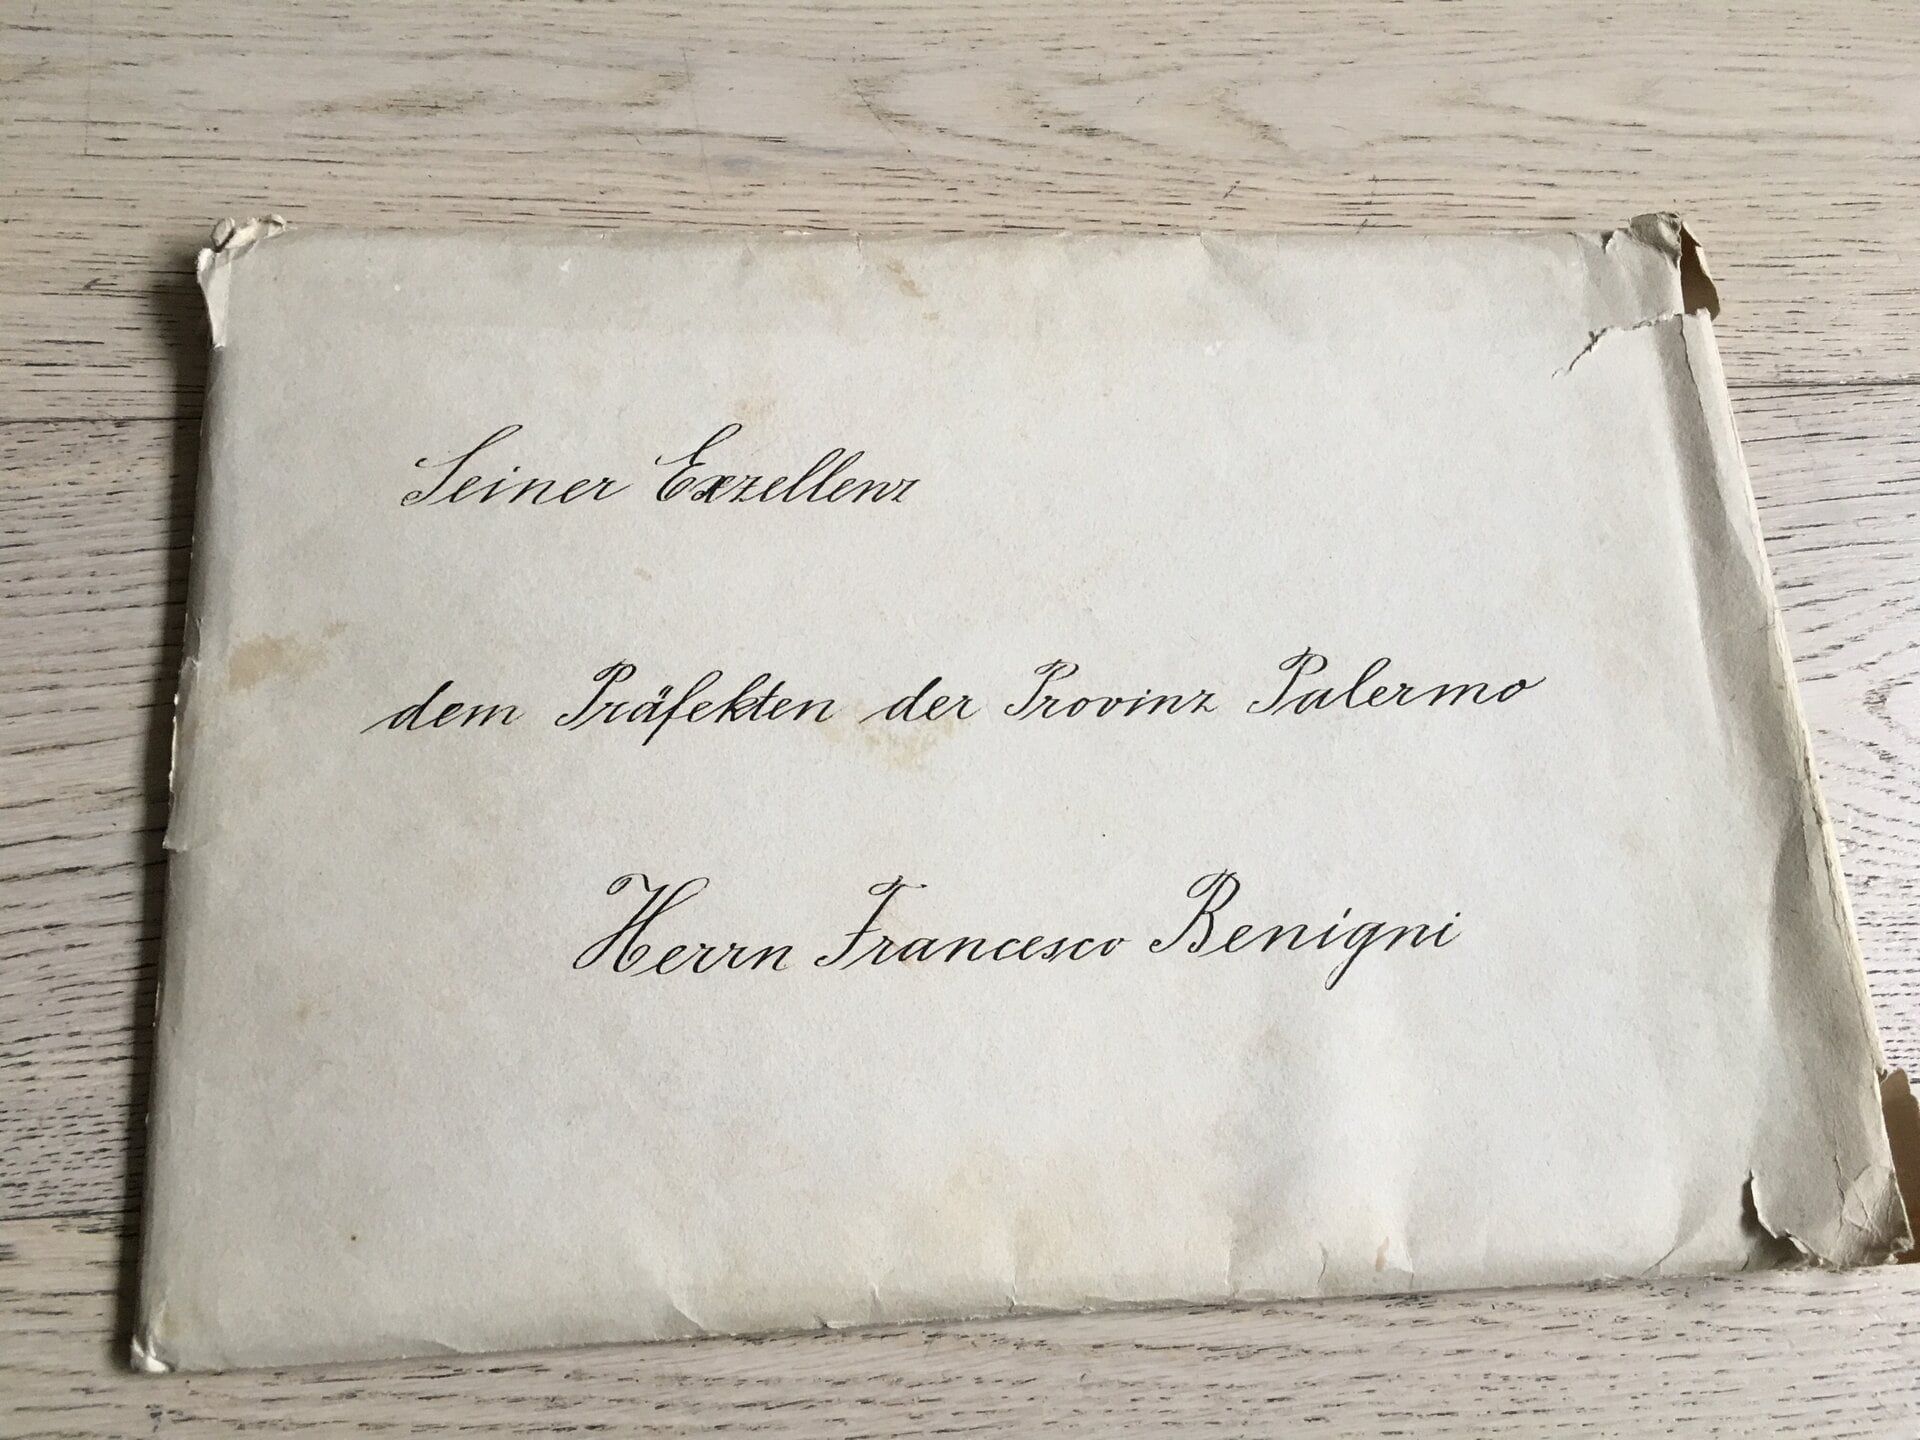 Seiner Exzellenz
dem Präfekten der Provinz Palermo
Herrn Francesco Benigni